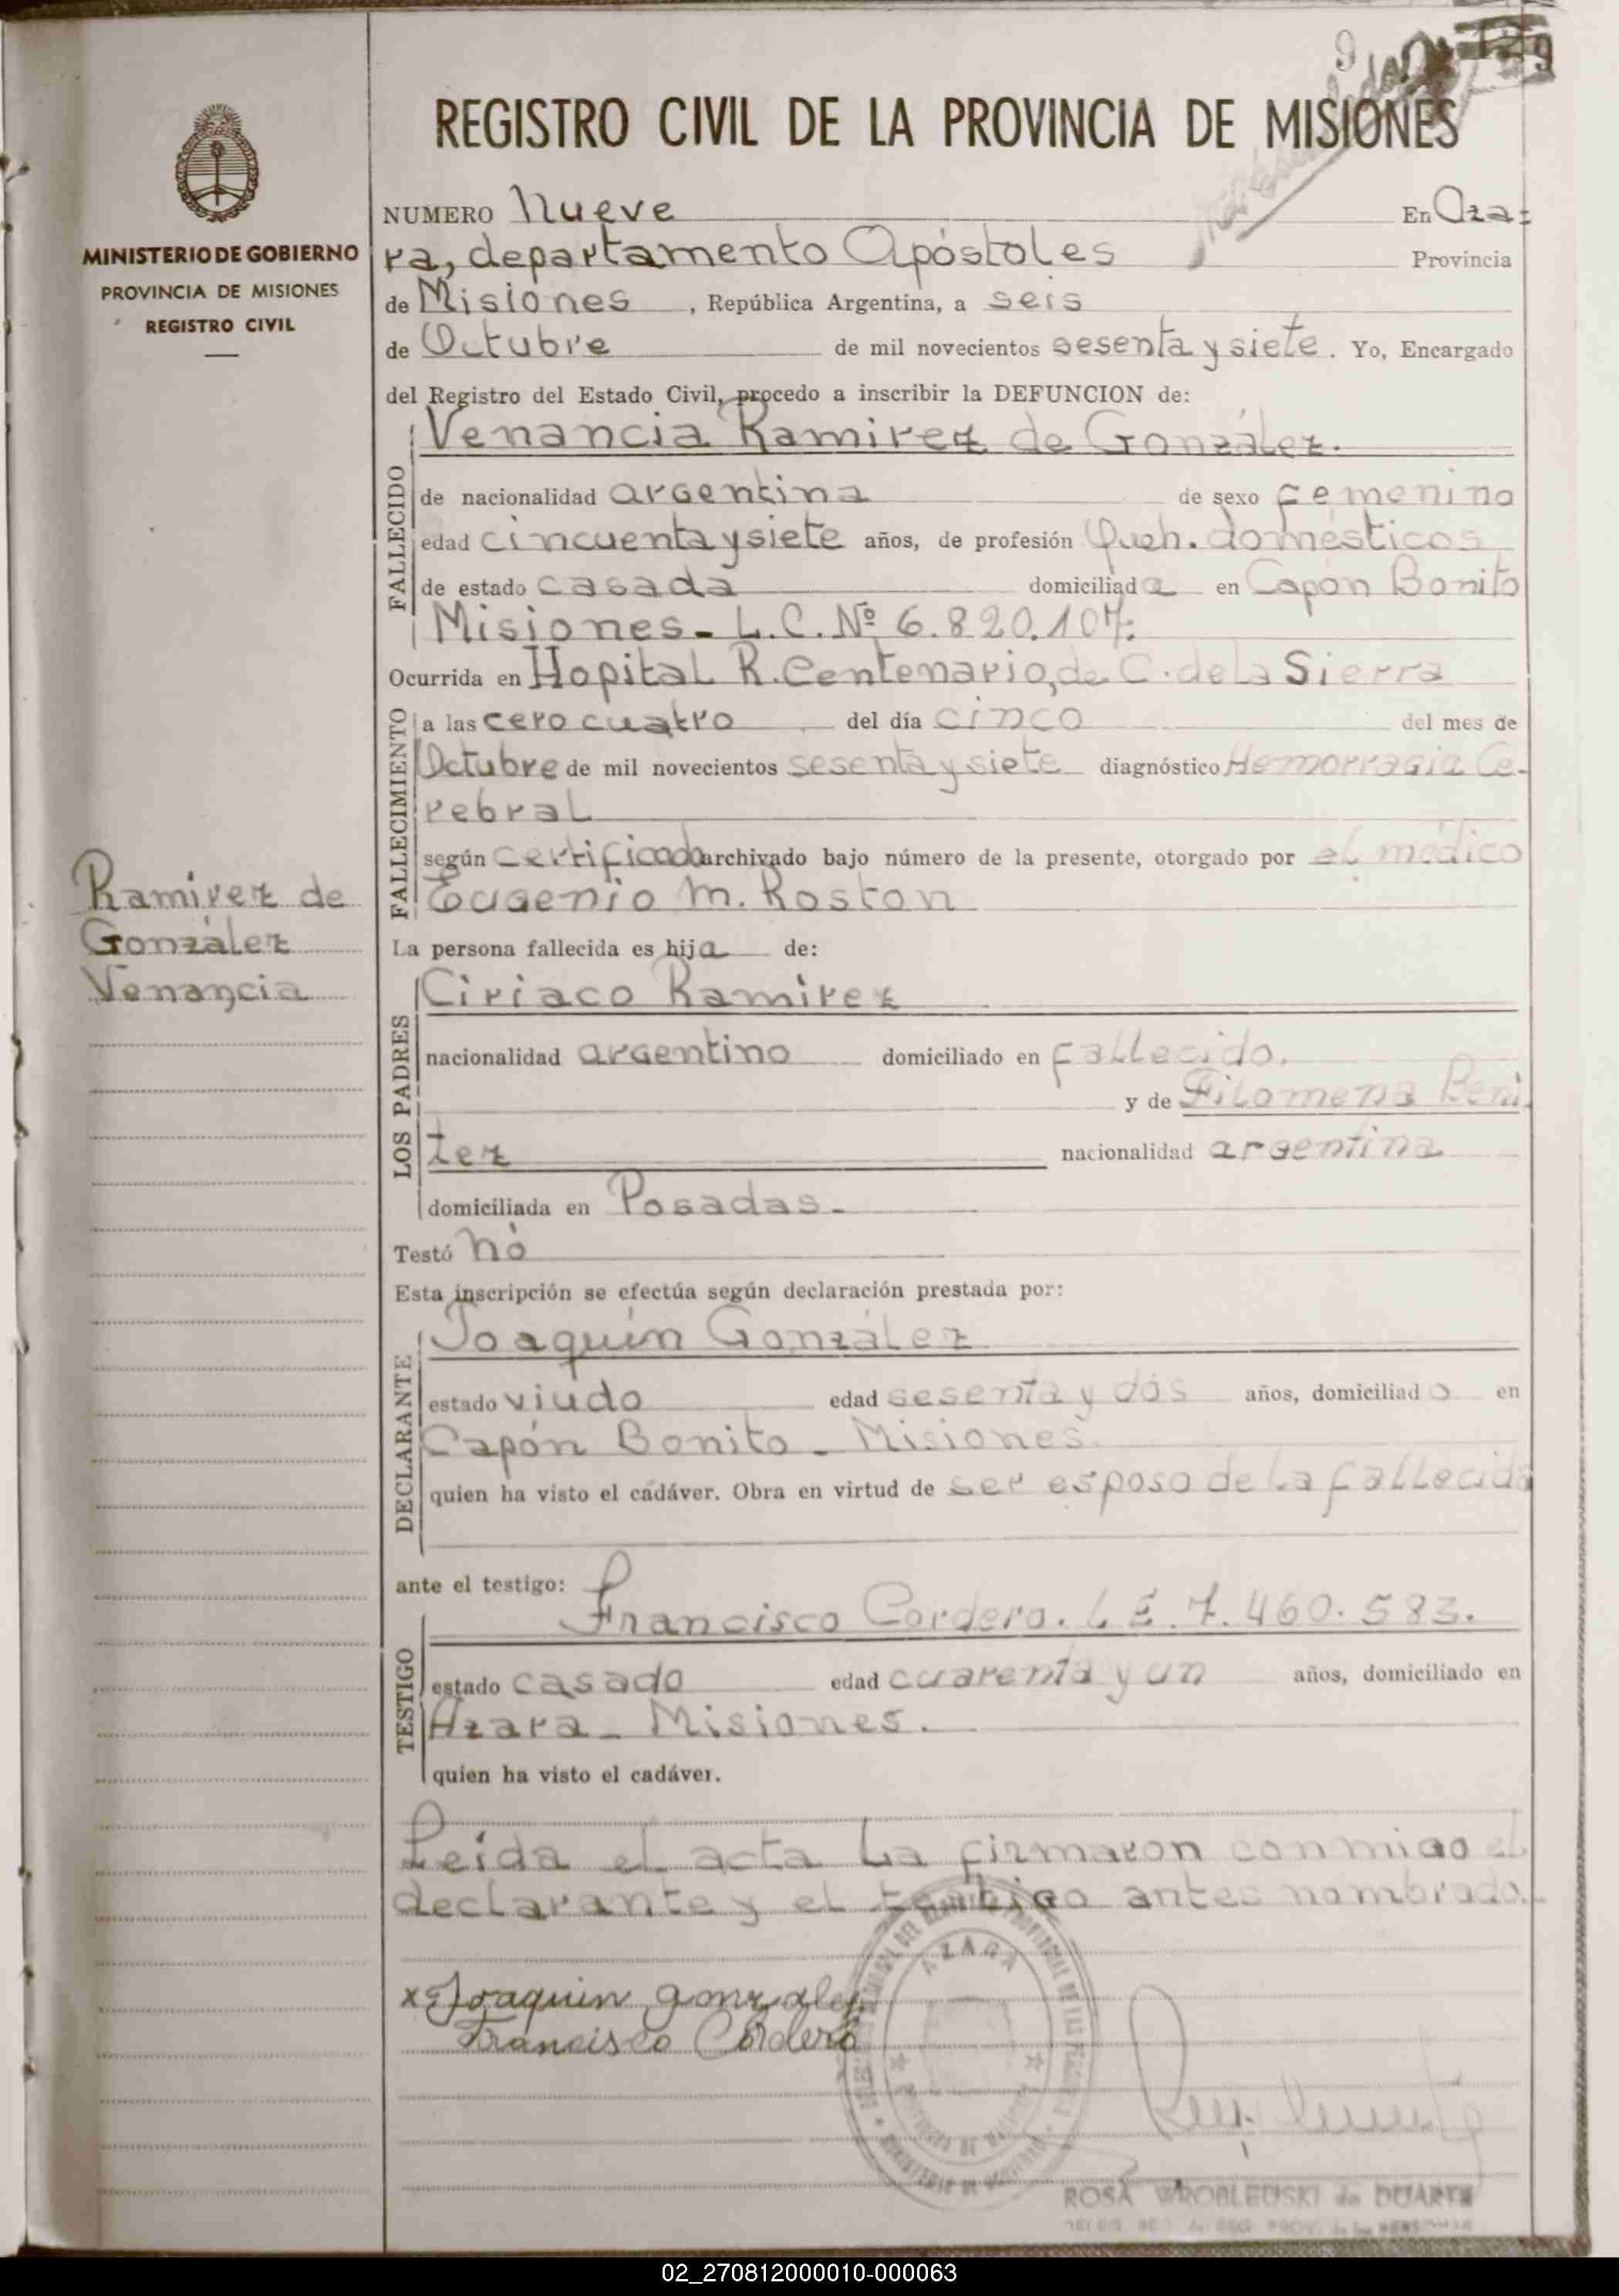 REGISTRO CIVIL DE LA PROVINCIA DE MISIONES
MINISTERIO DE GOBIERNO
PROVINCIA DE MISIONES
REGISTRO CIVIL
Ramirez de
González
Venancia
NUMERO Nueve En Aza=
ra, departamento Apóstoles Provincia
de Misiones, República Argentina, a seis
de Octubre de mil novecientos sesenta y siete. Yo, Encargado
del Registro del Estado Civil, procedo a inscribir la DEFUNCION de:
FALLECIDO
Venancia Ramirez de González.
de nacionalidad argentina de sexo femenino
edad cincuenta y siete años, de profesión Queh. domésticos
de estado casada domiciliada en Capón Bonito
Misiones- L.C. Nº 6.820.107.
Ocurrida en Hopital R. Centenario, de C. de la Sierra
FALLECIMIENTO
a las cero cuatro del día cinco del mes de
Octubre de mil novecientos sesenta y siete diagnóstico Hemorragia Ce-
rebral
según certificado archivado bajo número de la presente, otorgado por el médico
Eugenio M. Roston
La persona fallecida es hija de:
LOS PADRES
Ciriaco Ramirez
nacionalidad argentino domiciliado en fallecido.
y de Filomena Beni
tez nacionalidad argentina
domiciliada en Posadas-
Testó nó
Esta inscripción se efectúa según declaración prestada por:
DECLARANTE
Joaquín González
estado viudo edad sesenta y dós años, domiciliado en
Capón Bonito - Misiones
quien ha visto el cadáver. Obra en virtud de ser esposo de la fallecida
ante el testigo:
TESTIGO
Francisco Cordero. L E. 7.460.583.
estado casado edad cuarenta y un años, domiciliado en
Azara- Misiones.
quien ha visto el cadáver.
Leída el acta la firmaron conmigo el
declarante y el testigo antes nombrado.
x Joaquin gonzalez
Francisco Cordero
AZARA
ROSA WROBLEUSKI de DUARTE
02_270812000010-000063